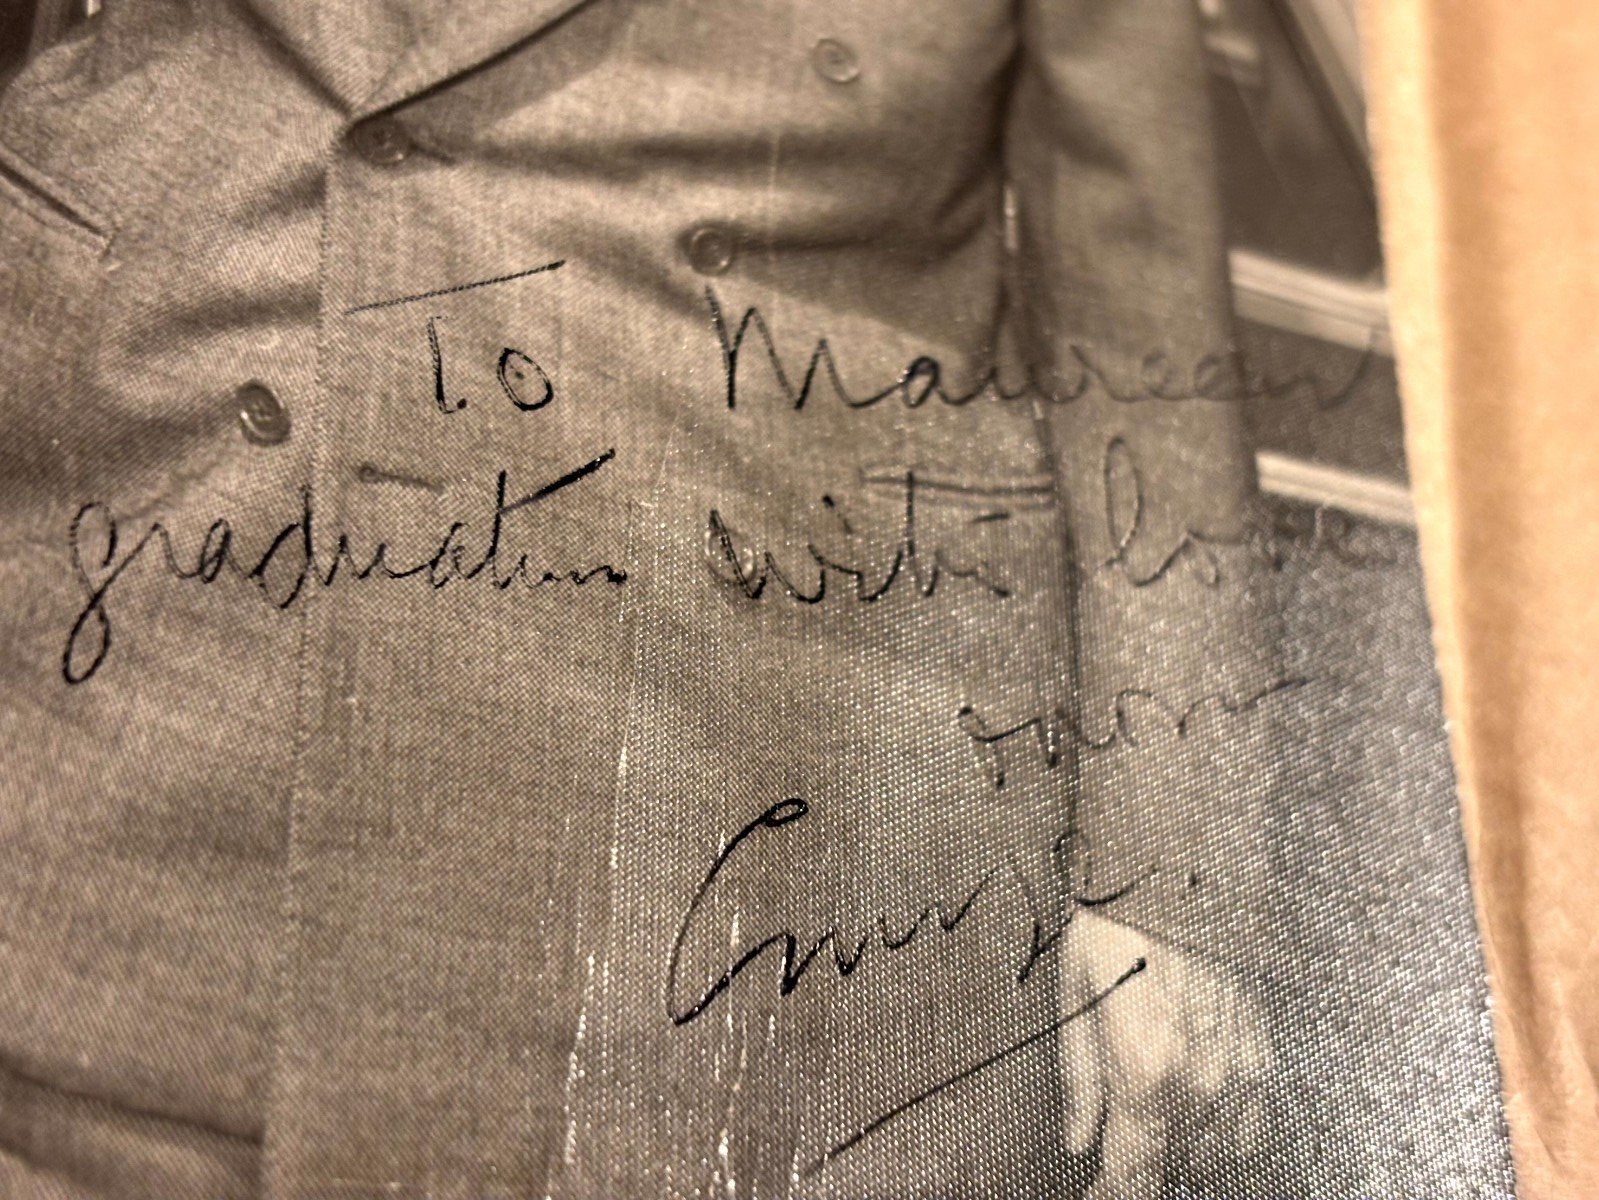 To Maureen
graduation with lo
from
George.